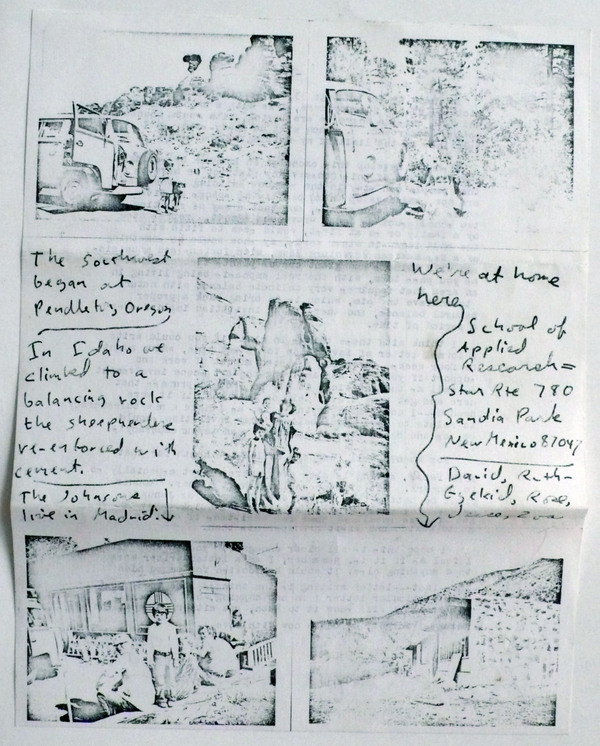 The Southwest
began at
Pendleton, Oregon
In Idaho we
climbed to a
balancing rock
the sheepherders
re-enforced with
cement.
The Johnsons
live in Madrid.
We're at home
here
School of
Applied
Research =
Star Rte 780
Sandia Park
New Mexico 87047
David, Ruth-
Ezekiel, Rose,